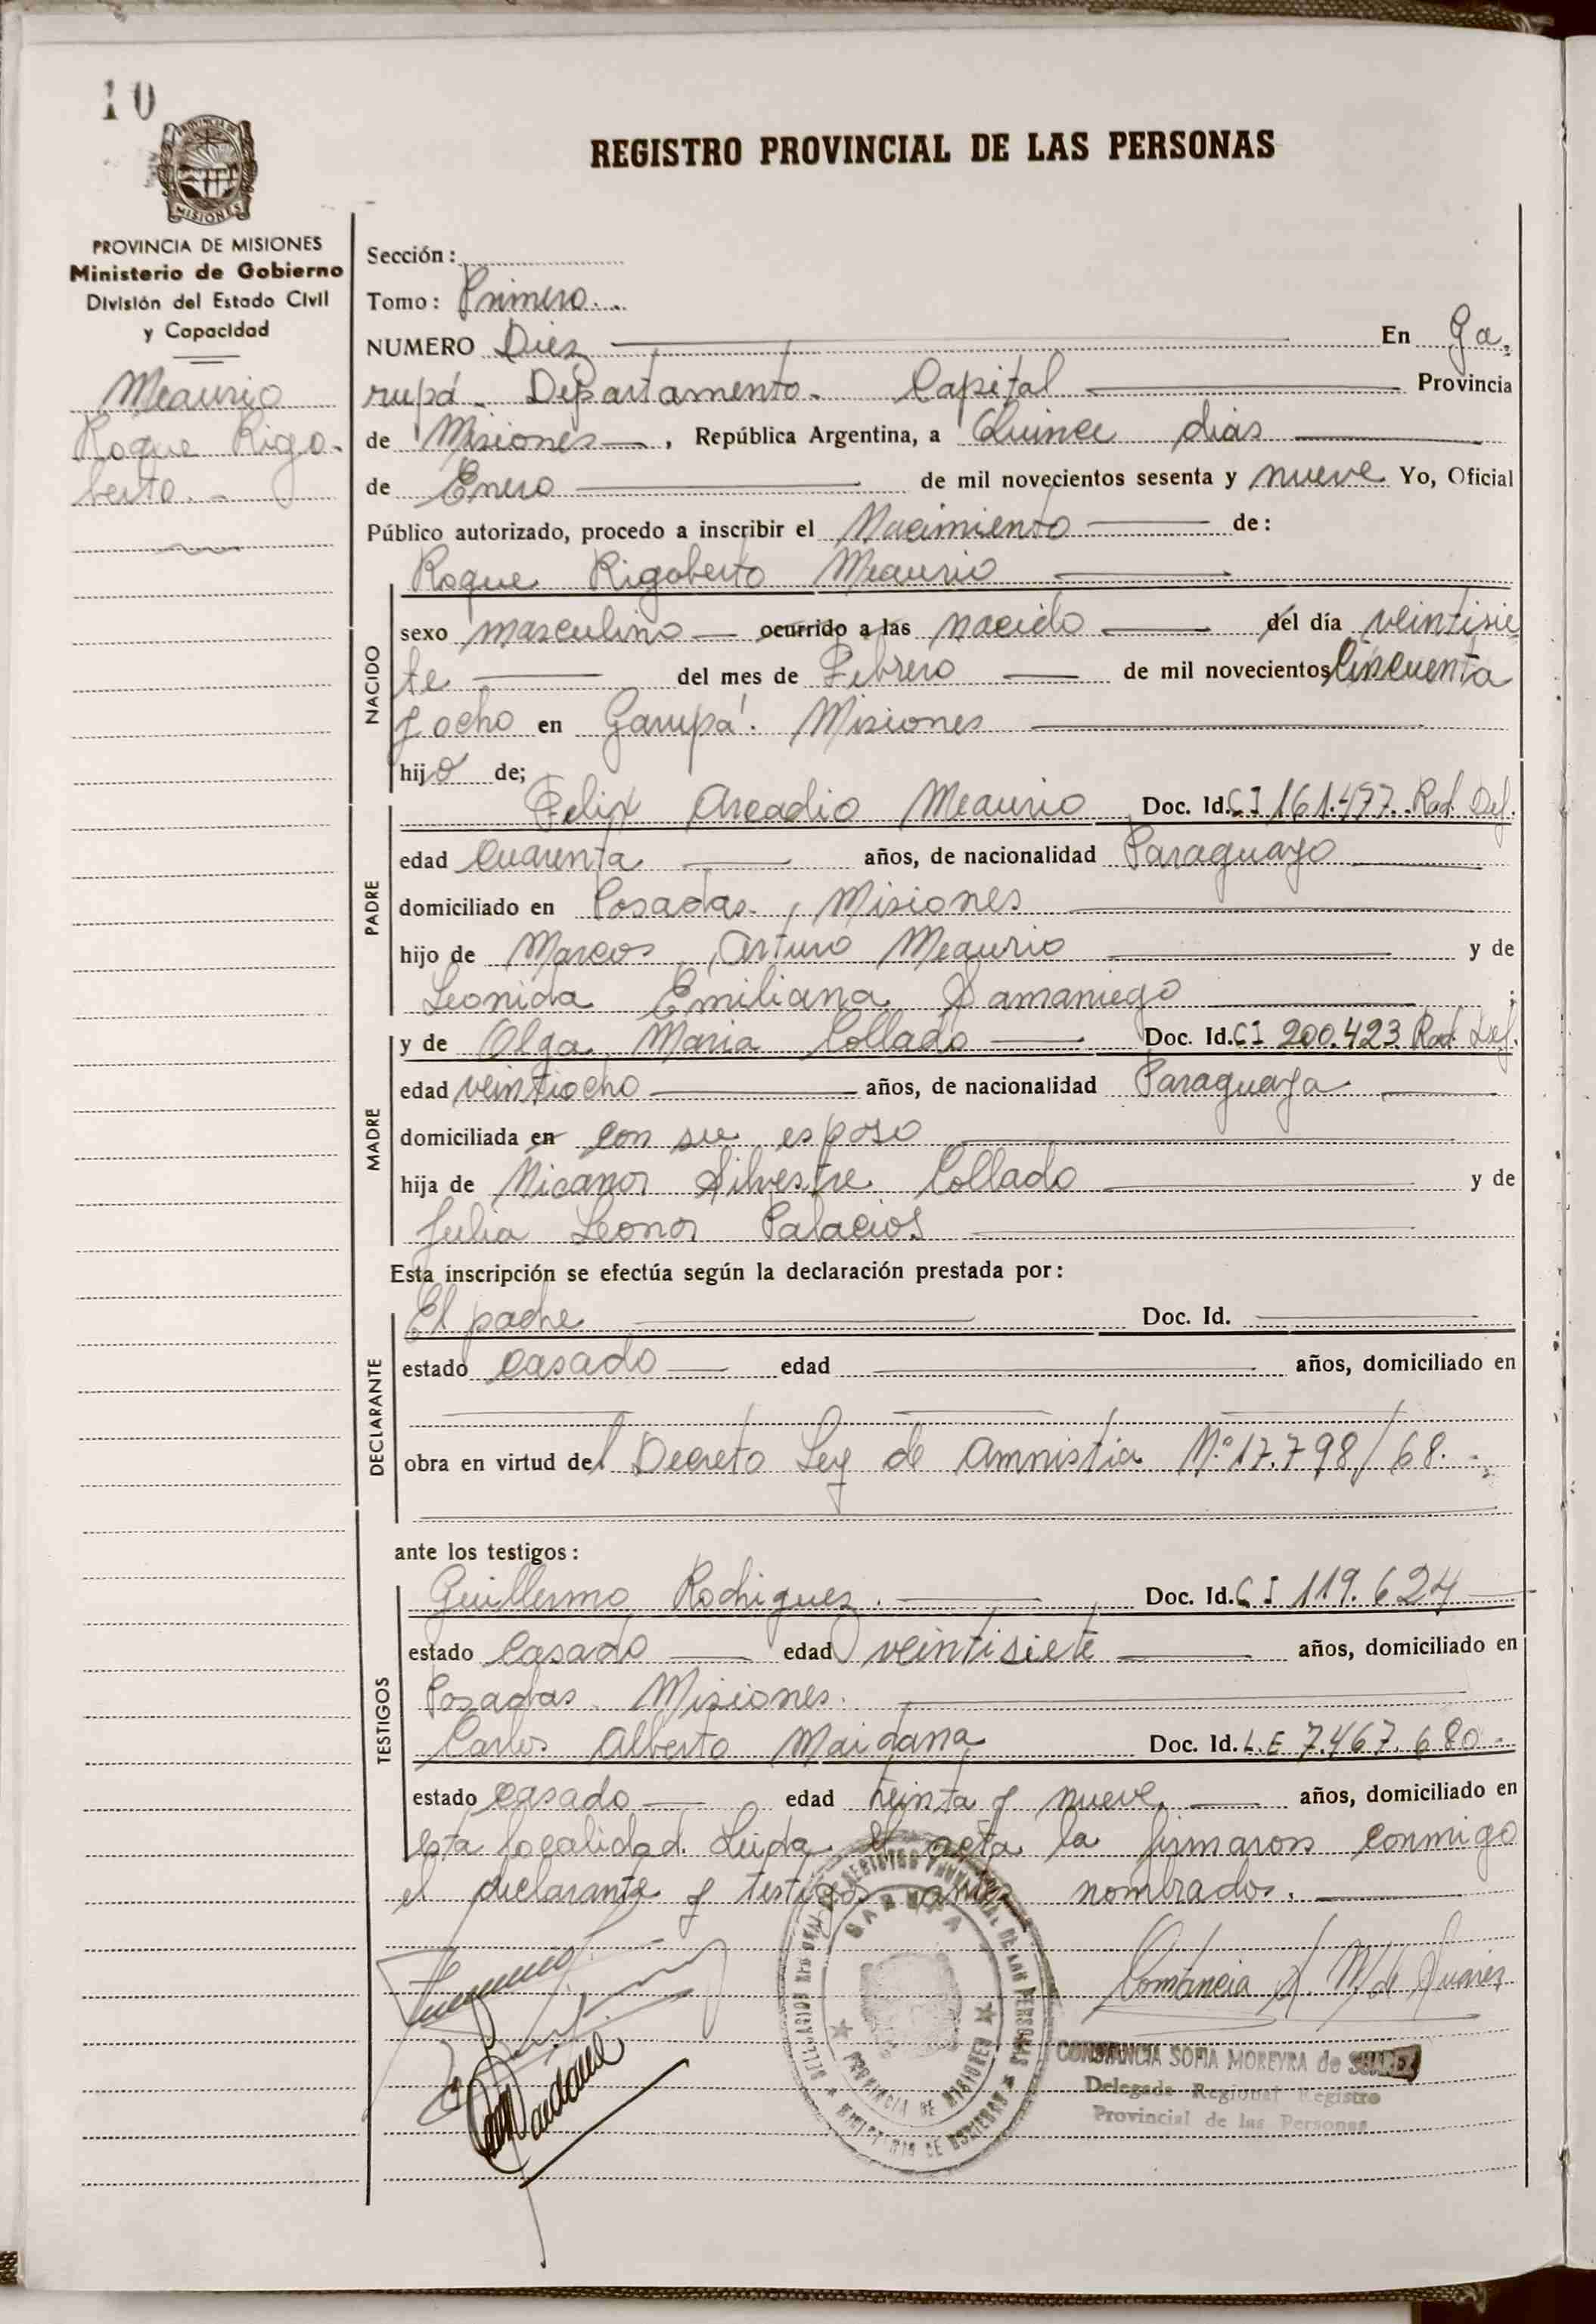 10
REGISTRO PROVINCIAL DE LAS PERSONAS
MISIONES
PROVINCIA DE MISIONES
Ministerio de Gobierno
División del Estado Civil
y Capacidad
Meaurio
Roque Rigo-
berto.-
Sección:
Tomo: Primero.
NUMERO Diez En Ga-
rupá - Departamento - Capital Provincia
de Misiones, República Argentina, a Quince dias
de Enero de mil novecientos sesenta y nueve Yo, Oficial
Público autorizado, procedo a inscribir el Nacimiento de:
Roque Rigoberto Meaurio
NACIDO
sexo masculino ocurrido a las nacido del día veintisie
te del mes de Febrero de mil novecientos Cincuenta
y ocho en Garupá. Misiones
hijo de;
PADRE
Felix Arcadio Meaurio Doc. Id. CI 161.477. Rad. Def.
edad cuarenta años, de nacionalidad Paraguayo
domiciliado en Posadas, Misiones
hijo de Marcos Arturo Meaurio y de
Leonida Emiliana Samaniego ;
MADRE
y de Olga Maria Collado Doc. Id. CI 200.423 Rad. Def.
edad veintiocho años, de nacionalidad Paraguaya
domiciliada en con su esposo
hija de Nicanor Silvestre Collado y de
Julia Leonor Palacios
Esta inscripción se efectúa según la declaración prestada por:
DECLARANTE
El padre Doc. Id.
estado casado edad años, domiciliado en
obra en virtud del Decreto Ley de Amnistia N.º 17.798/68.-
ante los testigos:
TESTIGOS
Guillermo Rodriguez. Doc. Id. CI 119.624
estado casado edad veintisiete años, domiciliado en
Posadas. Misiones.
Carlos Alberto Maidana Doc. Id. L.E 7.467.680-
estado casado edad treinta y nueve años, domiciliado en
esta localidad. Leida el acta la firmaron conmigo
el declarante y testigos antes nombrados.
GARUPA
PROVINCIA DE MISIONES
Constancia S. M. de Suarez
CONSTANCIA SOFIA MOREYRA de SUAREZ
Delegada Regional Registro
Provincial de las Personas